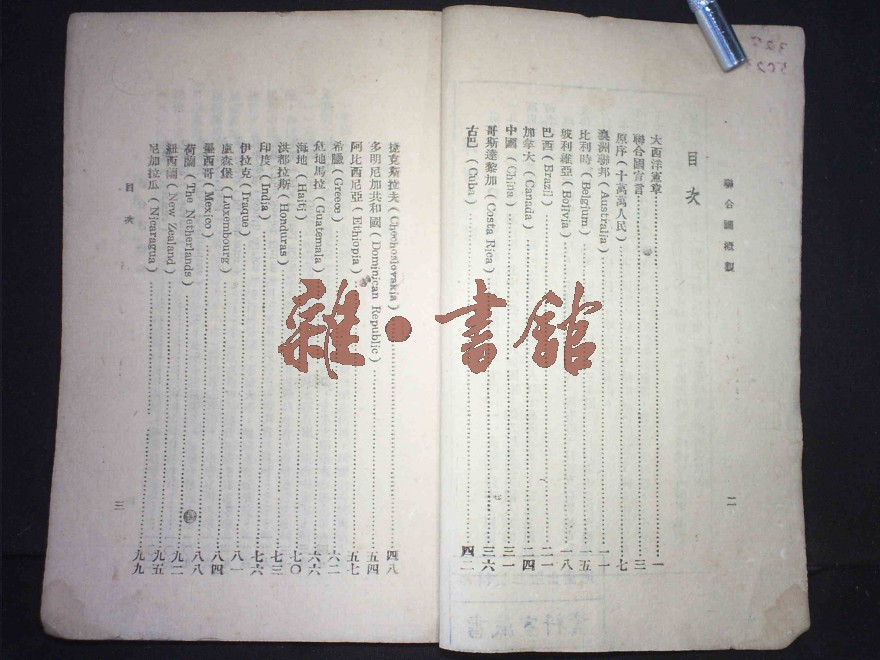 聯合國縱觀
二
目次
大西洋憲章…一
聯合國宣言…三
原序(十萬萬人民)…七
澳洲聯邦(Australia)…一一
比利時(Belgium)…一五
玻利維亞(Bolivia)…一八
巴西(Brazil)…二一
加拿大(Canada)…二四
中國(China)…三一
哥斯達黎加(Costa Rica)…三六
古巴(Cuba)…四二
捷克斯拉夫(Chechoslovakia)…四八
多明尼加共和國(Dominican Republic)…五四
阿比西尼亞(Ethiopia)…五七
希臘(Greece)…六二
危地馬拉(Guatemala)…六六
海地(Haiti)…七〇
洪都拉斯(Honduras)…七三
印度(India)…七六
伊拉克(Iraque)…八一
盧森堡(Luxembourg)…八四
墨西哥(Mexico)…八八
荷蘭(The Netherlands)…九二
紐西蘭(New Zealand)…九五
尼加拉瓜(Nicaragua)…九九
目次
三
雜·書館